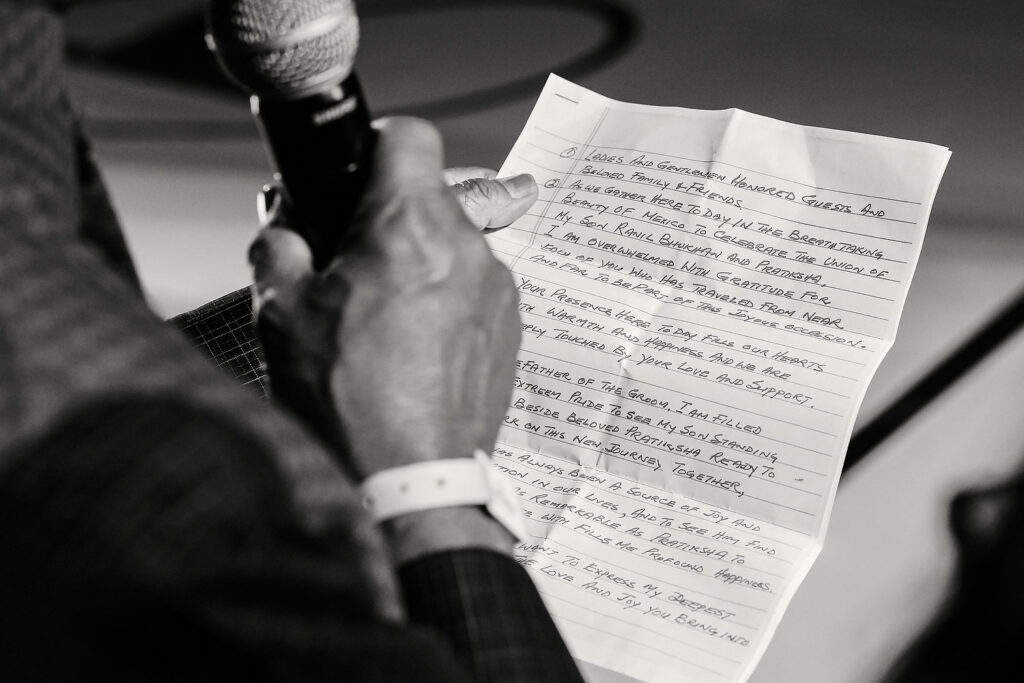 ① LADIES AND GENTLEMEN HONORED GUESTS AND
BELOVED FAMILY & FRIENDS
② AS WE GATHER HERE TODAY IN THE BREATHTAKING
BEAUTY OF MEXICO TO CELEBRATE THE UNION OF
MY SON RANIL BHUKHAN AND PRATIKSHA.
I AM OVERWHELMED WITH GRATITUDE FOR
EACH OF YOU WHO HAS TRAVELED FROM NEAR
AND FAR TO BE PART OF THIS JOYOUS OCCESSION.
YOUR PRESENCE HERE TODAY FILLS OUR HEARTS
WARMTH AND HAPPINESS AND WE ARE
TOUCHED BY YOUR LOVE AND SUPPORT.
FATHER OF THE GROOM, I AM FILLED
EXTREEM PRIDE TO SEE MY SON STANDING
BESIDE BELOVED PRATIKSHA READY TO
ON THIS NEW JOURNEY TOGETHER,
HAS ALWAYS BEEN A SOURCE OF JOY AND
IN OUR LIVES, AND TO SEE HIM FIND
AS REMARKABLE AS PRATIKSHA TO
WITH FILLS ME PROFOUND HAPPINESS.
WANT TO EXPRESS MY DEEPEST
THE LOVE AND JOY YOU BRING INTO